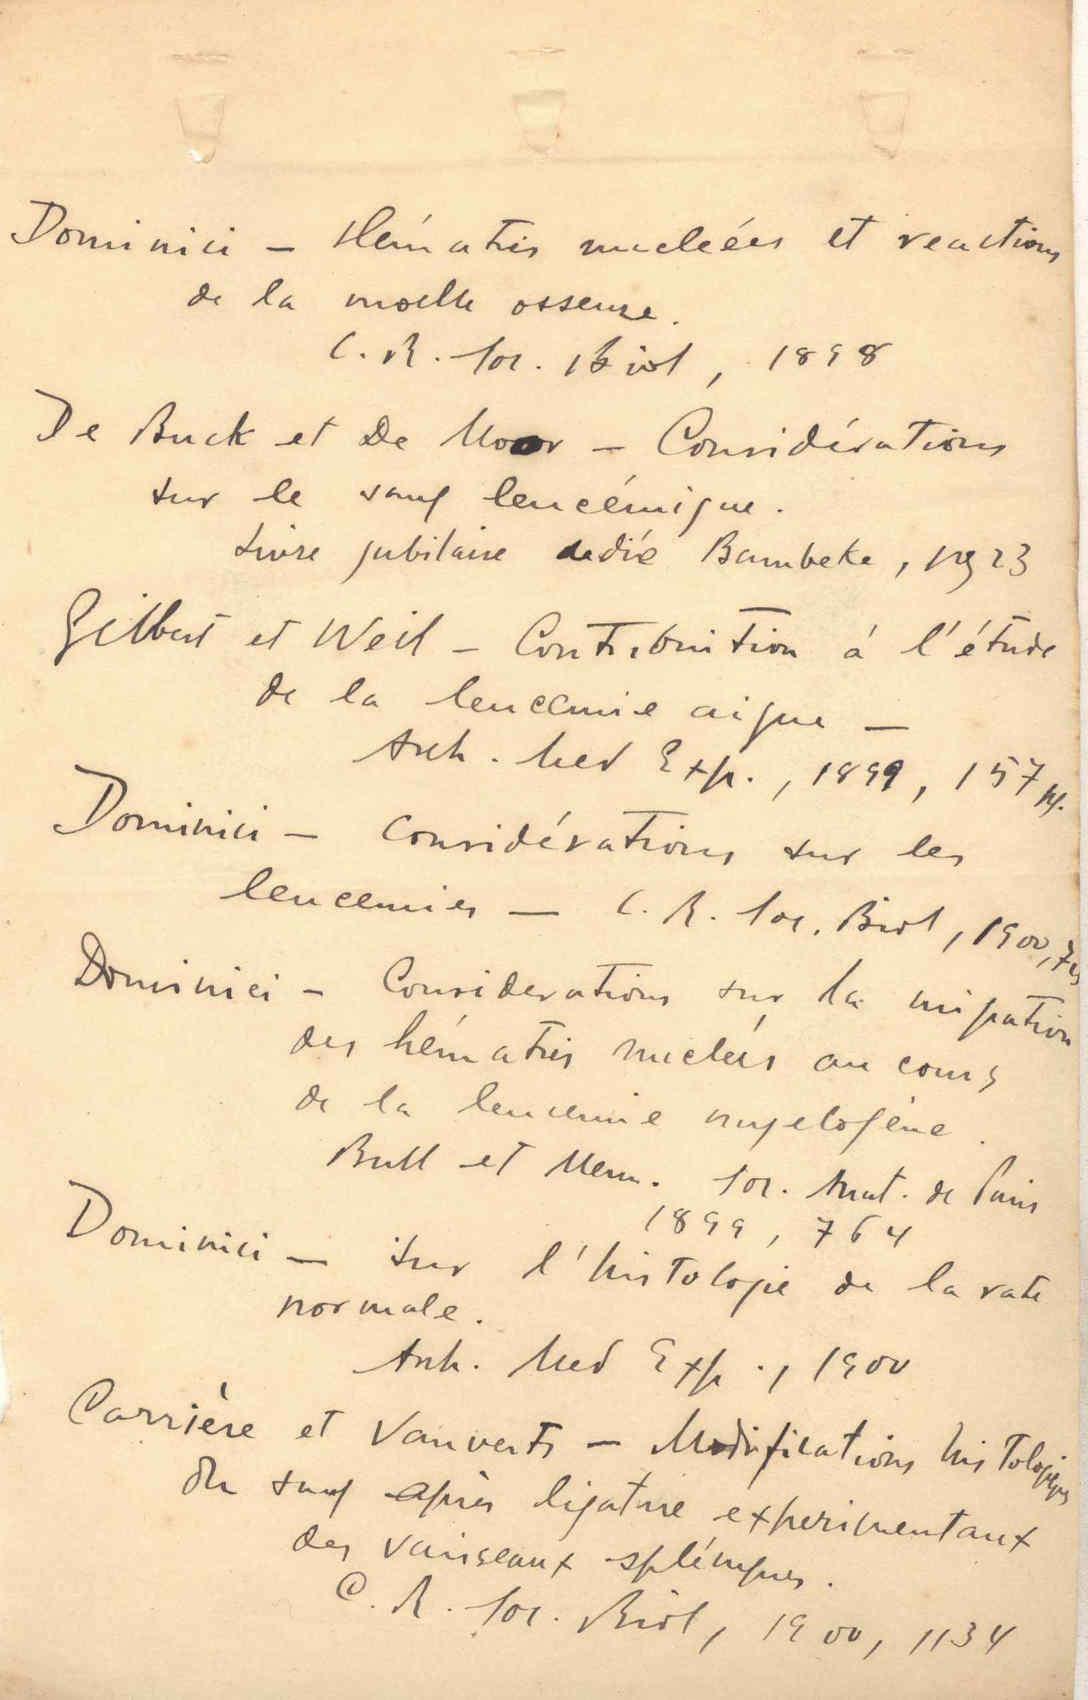 Dominici – Hématies nucléées et reactions
de la moelle osseuse.
C. R. Soc. Biol, 1898
De Buck et De Moor – Considérations
sur le sang leucémique.
Livre jubilaire dédié Bambeke, pg 23
Gilbert et Weil – Contribuition à l'étude
de la leucemie aigue –
Arch. Med Exp., 1899, 157 pg.
Dominici – Considérations sur les
leucemies – C. R. Soc. Biol, 1900,
Dominici – Considerations sur la migration
des hématies nucleés au cours
de la leucemie myelogène.
Bull et Mem. Soc. Anat. de Paris
1899, 764
Dominici – Sur l'histologie de la rate
normale.
Arch. Med Exp., 1900
Carrière et Vanverts – Modifications histologiques
du sang après ligature experimentaux
des vaisseaux spléniques.
C. R. Soc. Biol, 1900, 1134